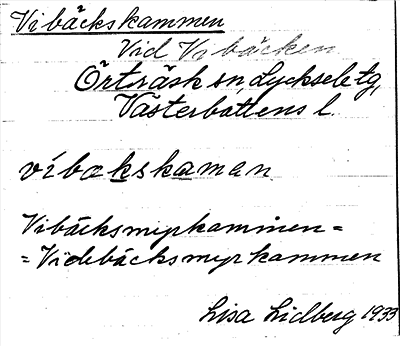 Vibäckskammen
Vid Vibäcken
Örträsk sn, Lycksele tg,
Västerbottens l.
víbakskaman
Vibäcksmyrkammen =
= Videbäcksmyrkammen
Lisa Lidberg 1933